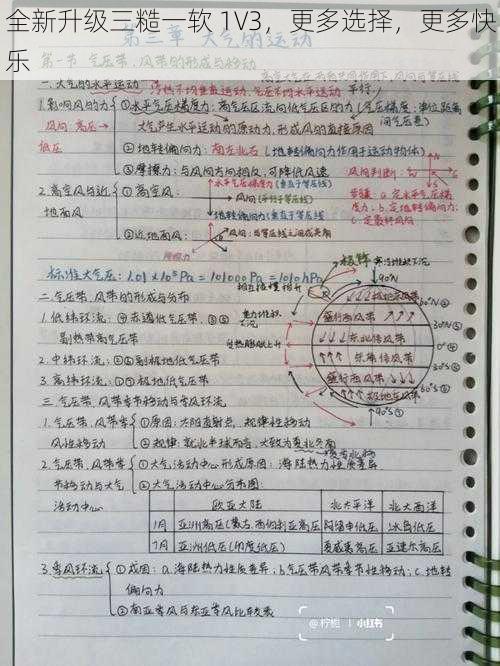 全新升级三糙一软 1V3，更多选择，更多快乐
第三章 大气的运动
第一节 气压带、风带的形成与移动
一、大气的水平运动
1.影响风的力
①水平气压梯度力：高气压区流向低气压区的力（气压梯度：单位距离间气压差）
风向 高压→低压
大气产生水平运动的原动力，形成风的直接原因
②地转偏向力：南左北右（地转偏向力作用于运动物体）
③摩擦力：与风向方向相反，可降低风速
风向判断：
步骤：a.定水平气压梯度力；b.定地转偏向力；c.定最终风向
2.高空风与近地面风
①高空风：
水平气压梯度力（垂直于等压线）
风向（平行于等压线）
地转偏向力（垂直于等压线）
②近地面风：
风向：与等压线之间成夹角
摩擦力
标准大气压：1.01×10⁵Pa = 101000Pa = 1010hPa
二、气压带、风带的形成与分布
1.低纬环流：
副热带高气压带
2.中纬环流：⑤⑥副极地低气压带
3.高纬环流：⑦⑧极地低气压带
极锋
90°N
60°N
盛行西风带
30°N
东北信风带
0°
东南信风带
30°S
盛行西风带
60°S
极地东风带
90°S
三、气压带、风带季节移动与季风环流
1.气压带、风带季节性移动
①原因：太阳直射点，规律性移动
②规律：就北半球而言，大致为夏北冬南
2.气压带、风带季节移动与大气活动中心
①大气活动中心形成原因：海陆热力性质差异
②大气活动中心分布：
欧亚大陆 北太平洋 北大西洋
1月 亚洲高压（蒙古、西伯利亚高压） 阿留申低压 冰岛低压
7月 亚洲低压（印度低压） 夏威夷高压 亚速尔高压
3.季风环流
①成因：a.海陆热力性质差异；b.气压带风带季节性移动；c.地转偏向力
②南亚季风与东亚季风比较表
@柠栀 | 小红书